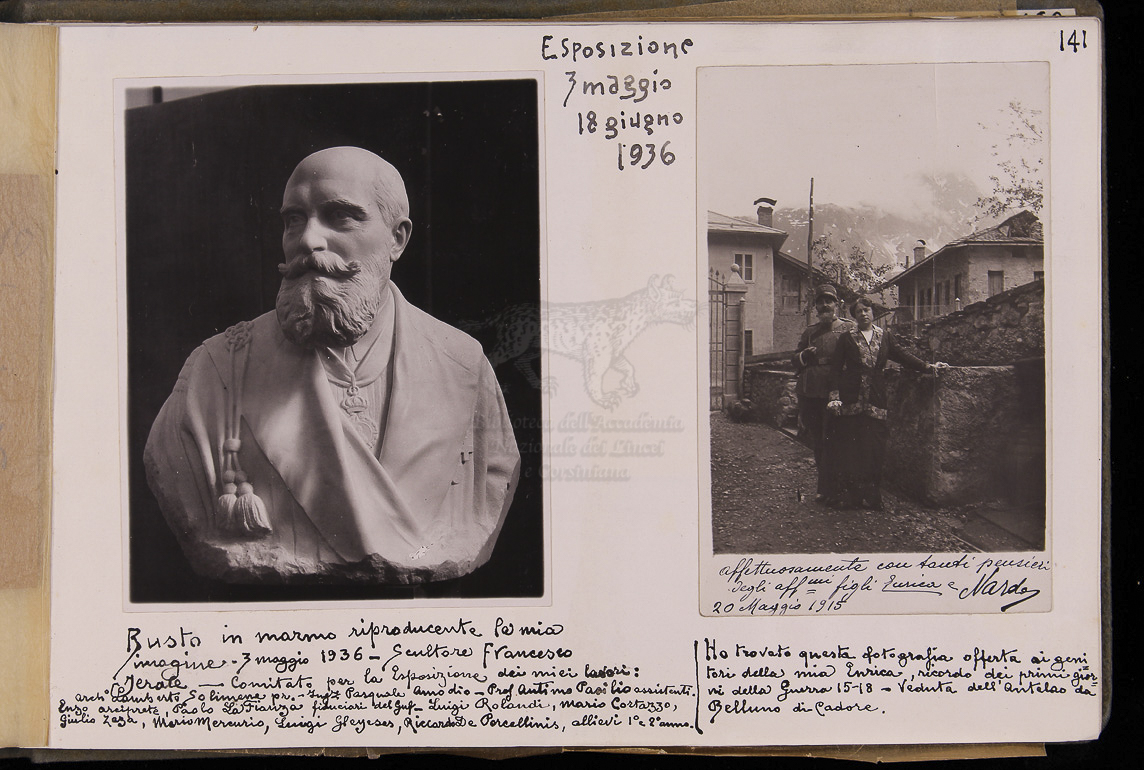 141
Esposizione
3 maggio
18 giugno
1936
Busto in marmo riproducente la mia
imagine - 3 maggio 1936 - Scultore Francesco
Jerace - Comitato per la Esposizione dei miei lavori:
arch° Lamberto Solimene pr. - Ing. Pasquale Amodio - Prof. Antimo assistenti.
Enzo arciprete Paolo La Fianza fiduciari del Guf - Luigi Rolandi, Mario Cortazzo,
Giulio Zasa, Mario Mercurio, Luigi Gleyeses, Riccardo De Porcellinis, allievi 1° e 2° anno.
affettuosamente con tanti pensieri
degli aff.mi figli Enrica e Nardo
20 Maggio 1915
Ho trovato questa fotografia offerta ai geni
tori della mia Enrica, ricordo dei primi gior
ni della Guerra 15-18 - Veduta dell'Antelao da
Belluno di Cadore.
Biblioteca dell'Accademia
Nazionale dei Lincei
e Corsiniana